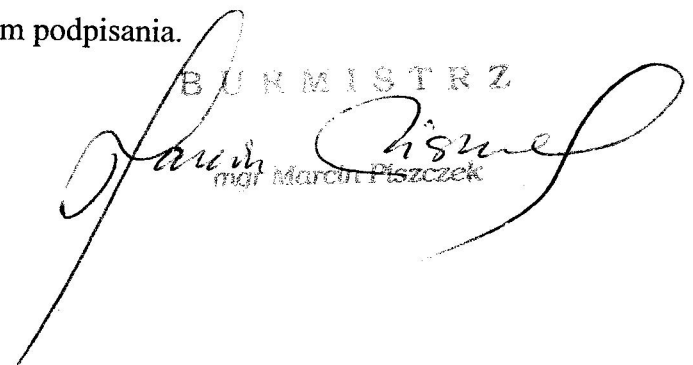 m podpisania.
BURMISTRZ
mgr Marcin Piszczek